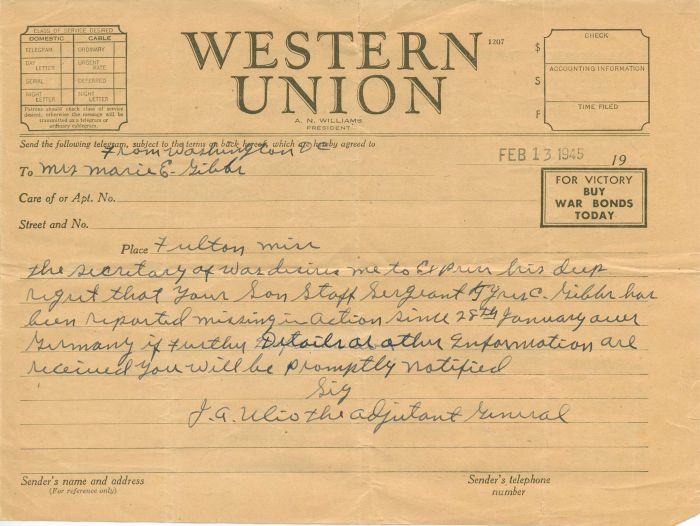 CLASS OF SERVICE DESIRED
DOMESTIC CABLE
TELEGRAM ORDINARY
DAY LETTER URGENT RATE
SERIAL DEFERRED
NIGHT LETTER NIGHT LETTER
Patrons should check class of service
desired; otherwise the message will be
transmitted as a telegram or
ordinary cablegram.
WESTERN
UNION
1207
A. N. WILLIAMS
PRESIDENT
$ CHECK
S ACCOUNTING INFORMATION
F TIME FILED
Send the following telegram, subject to the terms on back hereof, which are hereby agreed to
From Washington DC
FEB 13 1945 19
To Mrs Marie E. Gibbs
Care of or Apt. No.
Street and No.
FOR VICTORY
BUY
WAR BONDS
TODAY
Place Fulton Miss
the Secretary of War desires me to Express his deep
regret that Your Son Staff Sergeant Tyres C. Gibbs has
been reported missing in Action since 28th January over
Germany if further Details or other Information are
received You will be promptly notified
Sig
J. A. Ulio the adjutant General
Sender's name and address
(For reference only)
Sender's telephone
number